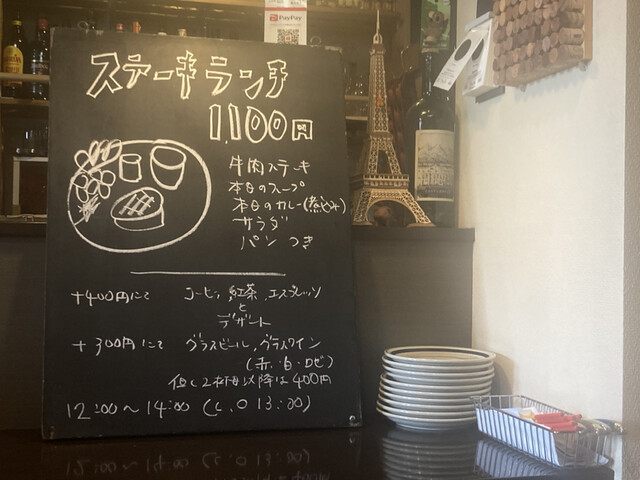 PayPay
ステーキランチ
1,100円
牛肉ステーキ
本日のスープ
本日のカレー(煮込み)
サラダ
パン つき
+400円にて コーヒー, 紅茶, エスプレッソ
と
デザート
+300円にて グラスビール, グラスワイン
(赤・白・ロゼ)
但し2杯目以降は400円
12:00〜14:00 (L.O 13:30)